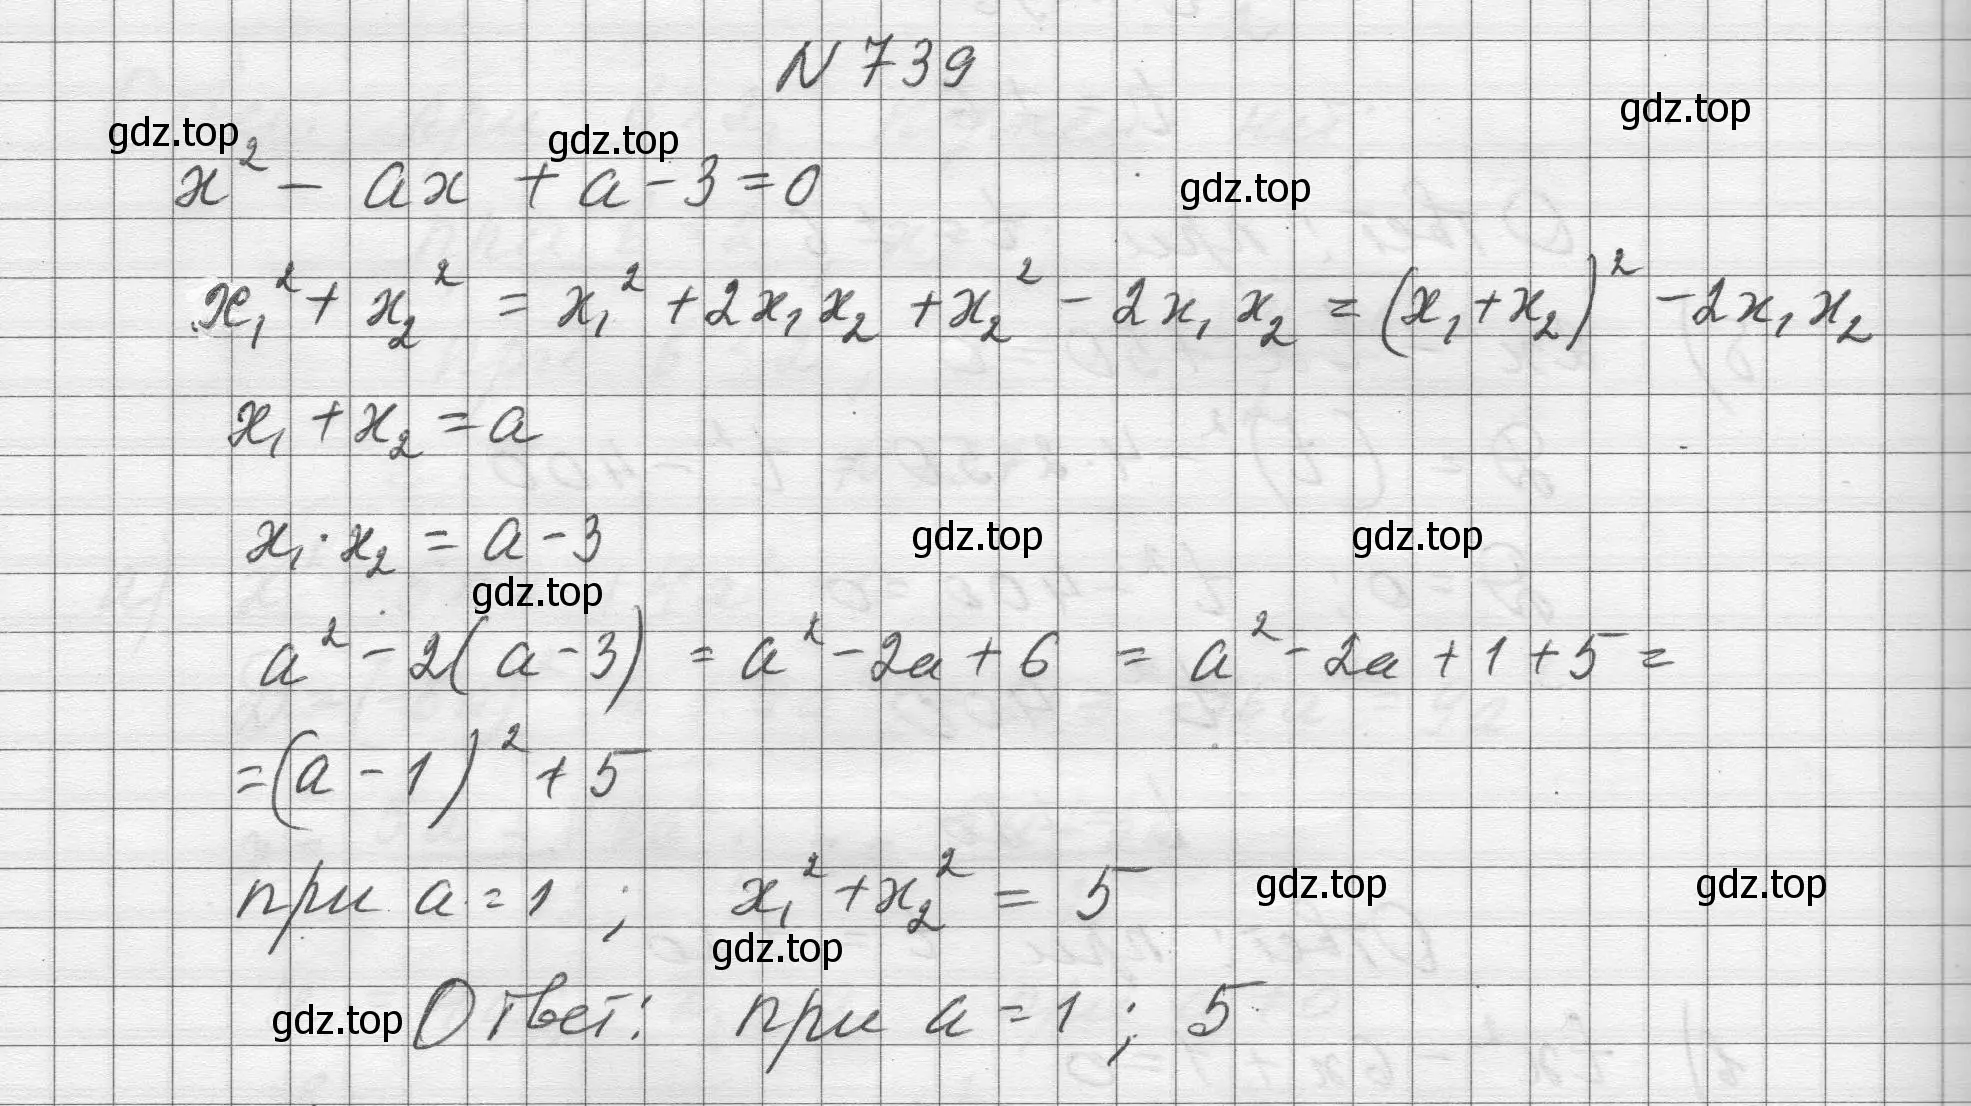 N 739
gdz.top
gdz.top gdz.top
x² - ax + a - 3 = 0
gdz.top
x₁² + x₂² = x₁² + 2x₁x₂ + x₂² - 2x₁x₂ = (x₁ + x₂)² - 2x₁x₂
x₁ + x₂ = a
x₁ · x₂ = a - 3
gdz.top gdz.top
gdz.top
a² - 2(a - 3) = a² - 2a + 6 = a² - 2a + 1 + 5 =
= (a - 1)² + 5
при a = 1 ; x₁² + x₂² = 5
gdz.top gdz.top
gdz.top
gdz.top
Ответ: при a = 1 ; 5